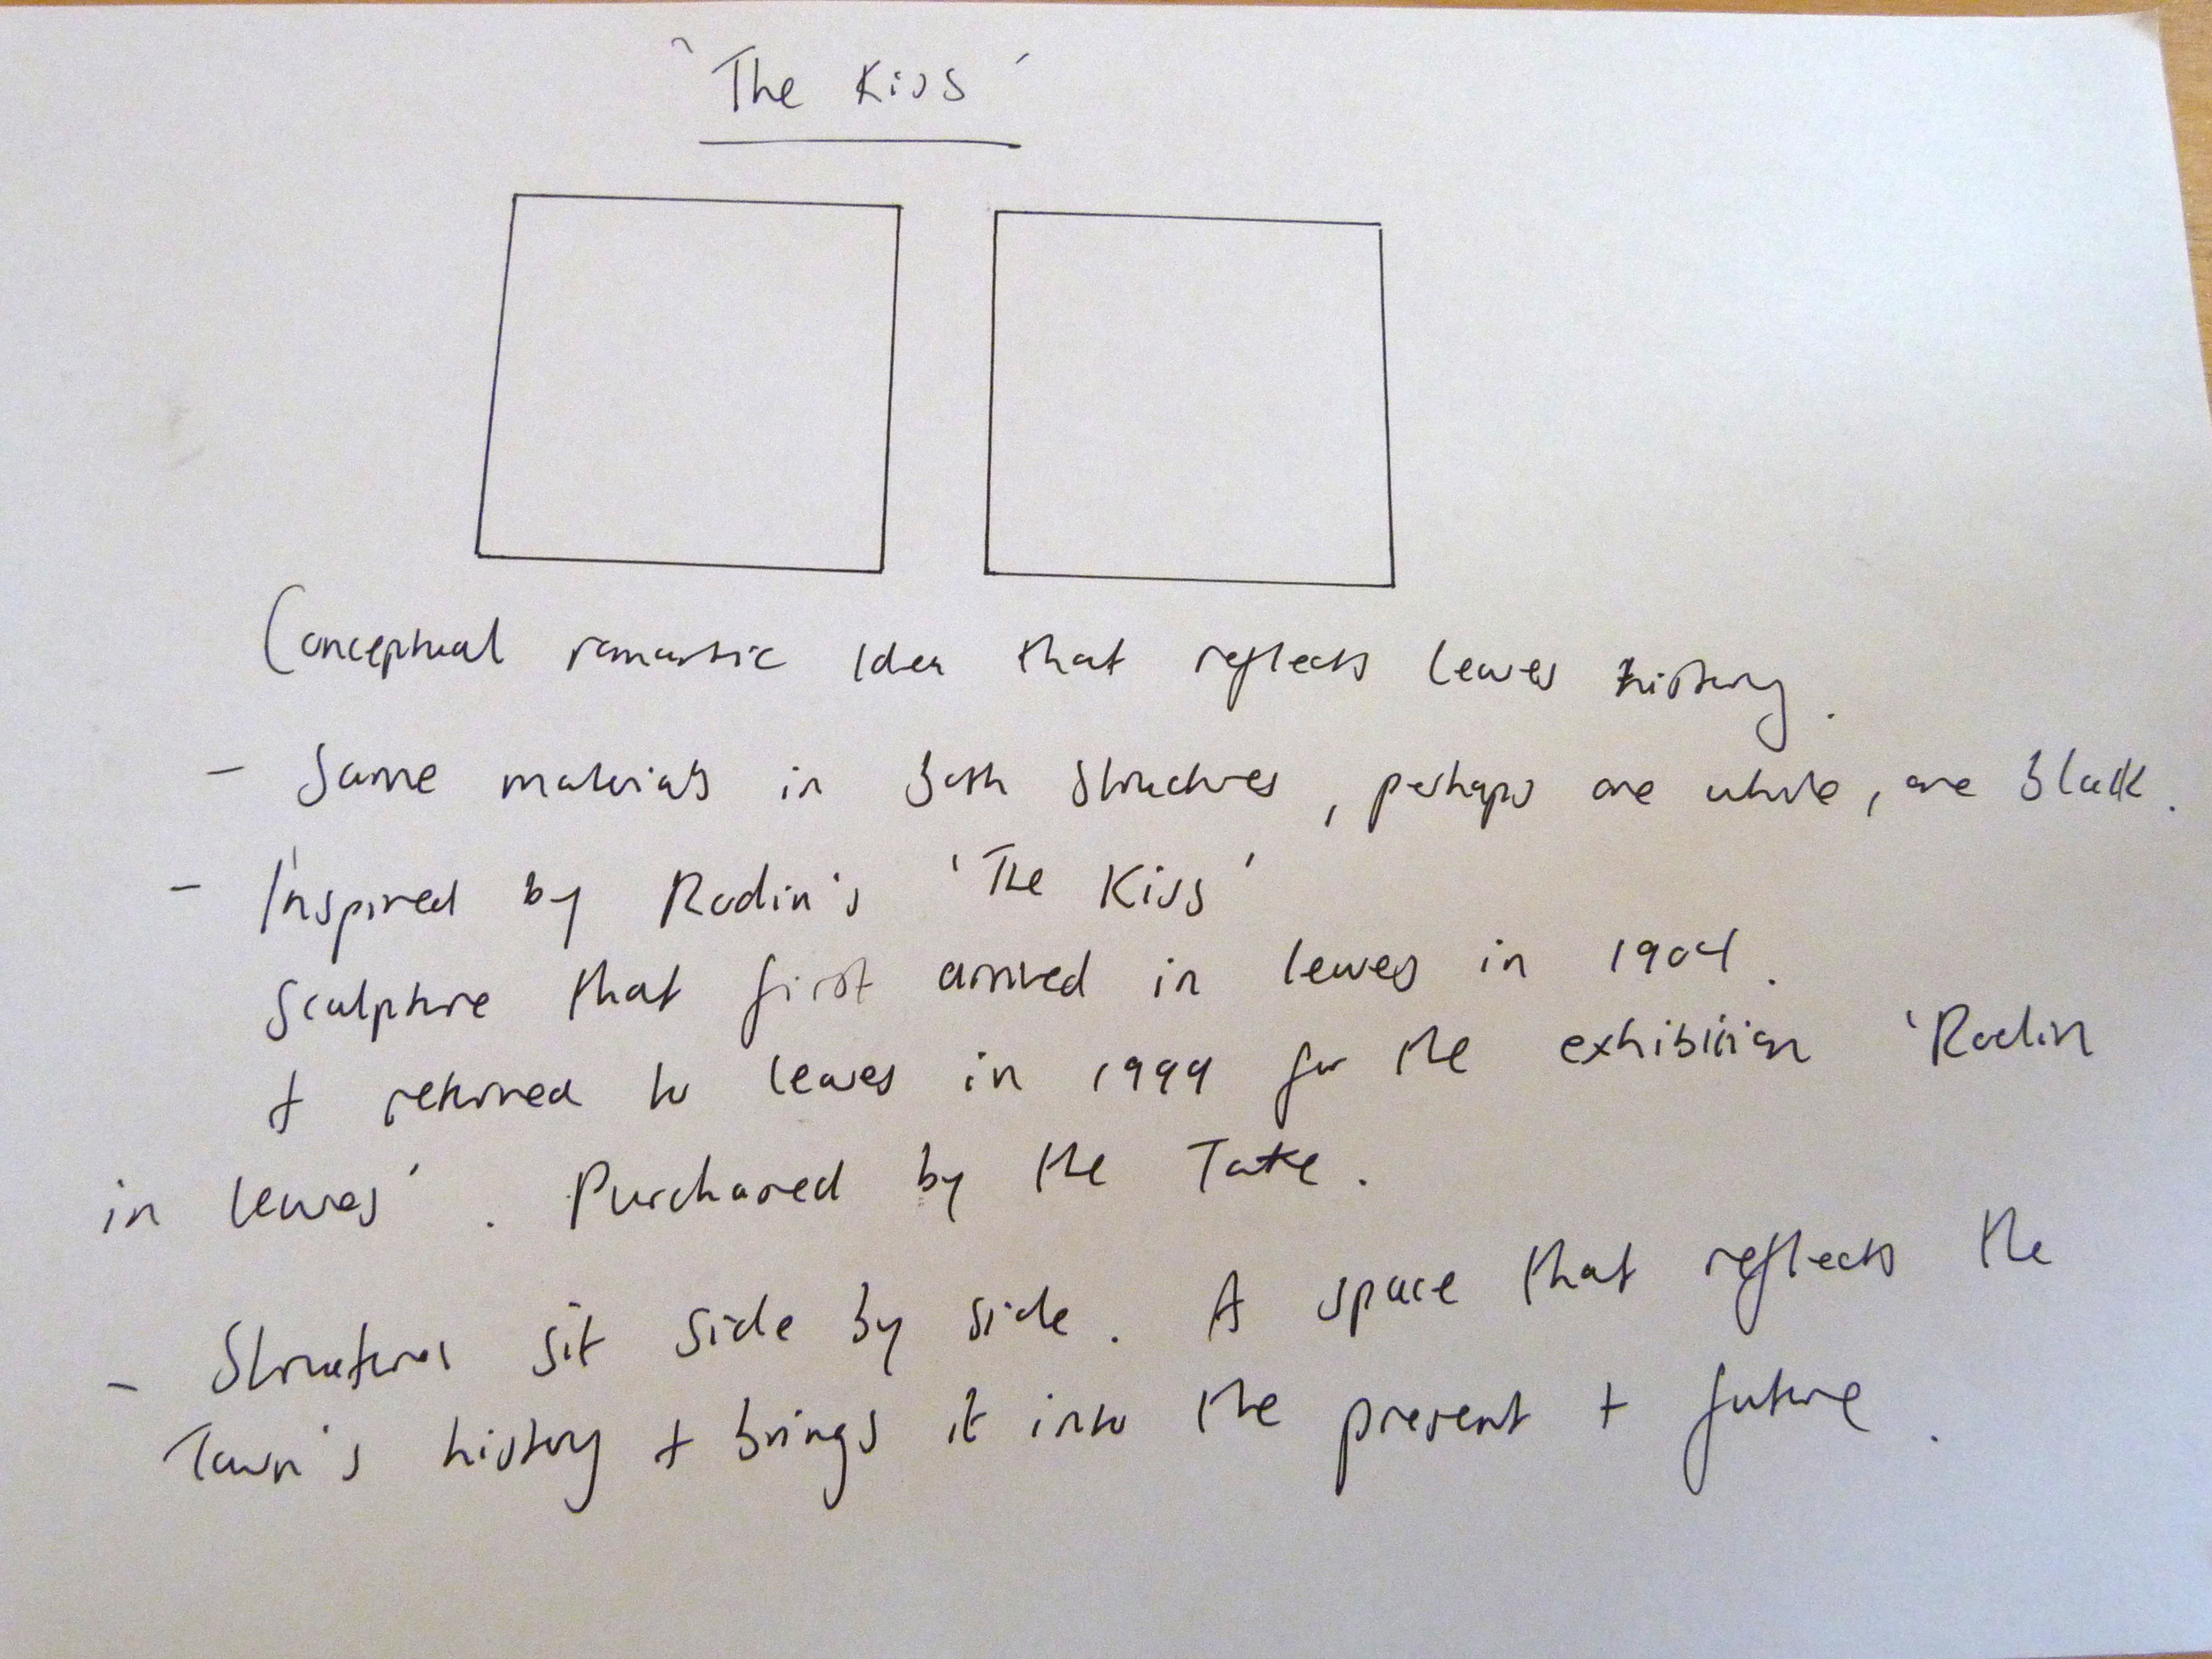 'The Kiss'
Conceptual romantic idea that reflects Lewes history.
- Same materials in both structures, perhaps one white, one black.
- Inspired by Rodin's 'The Kiss'
Sculpture that first arrived in Lewes in 1904.
+ returned to Lewes in 1999 for the exhibition 'Rodin
in Lewes'. Purchased by the Tate.
- Structures sit side by side. A space that reflects the
Town's history + brings it into the present + future.